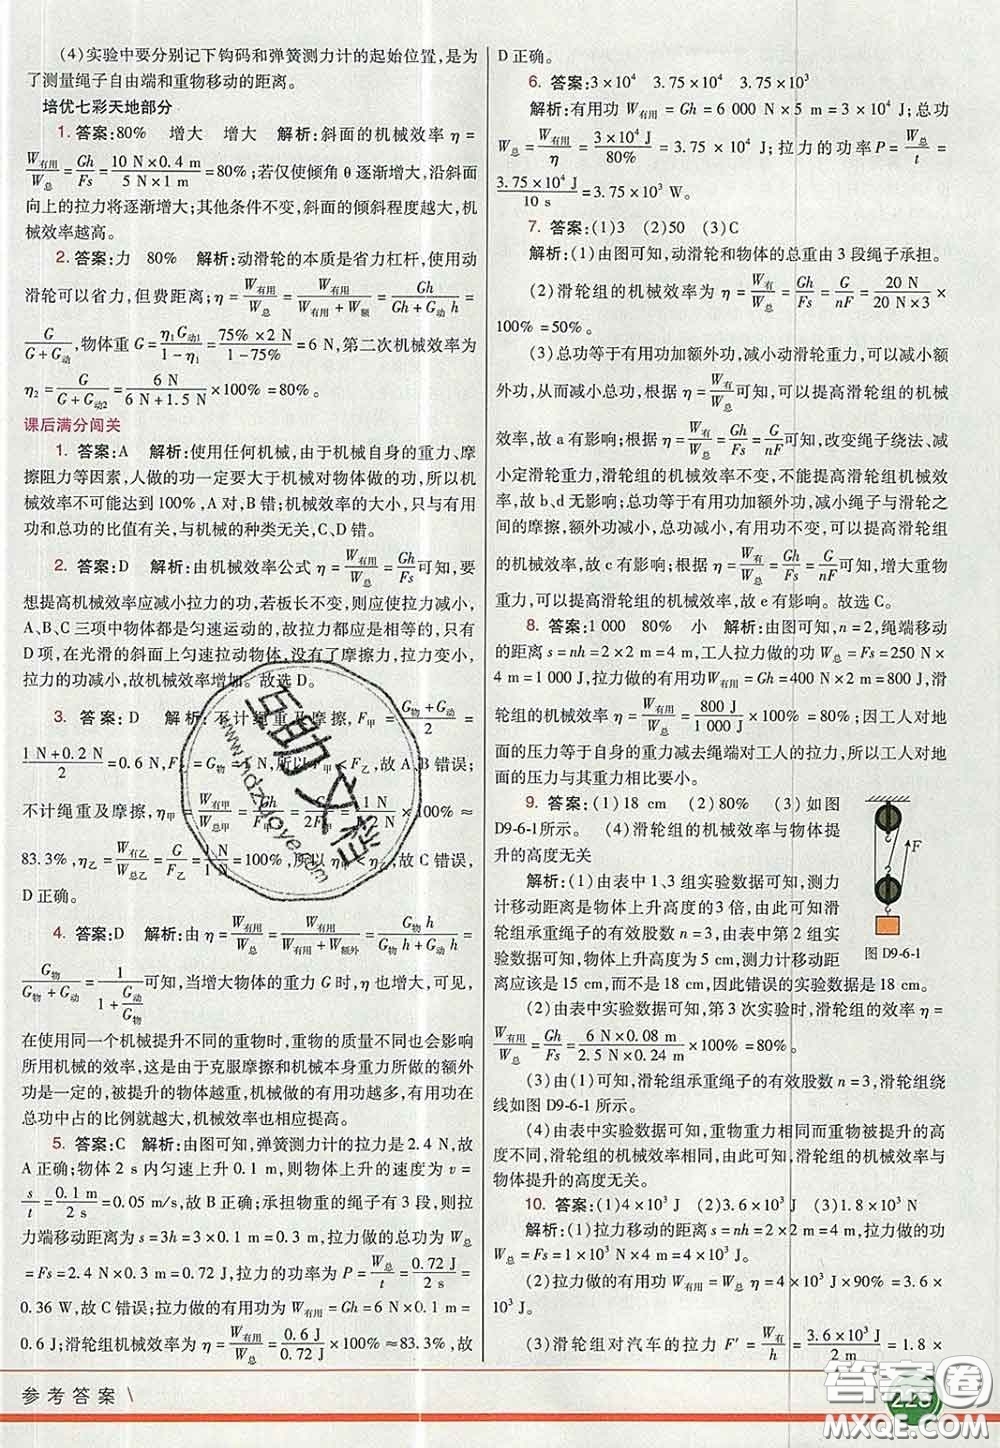 (4)实验中要分别记下钩码和弹簧测力计的起始位置,是为
了测量绳子自由端和重物移动的距离。
培优七彩天地部分
1. 答案:80%　增大　增大　解析:斜面的机械效率 η =
W有用/W总 = Gh/Fs = (10 N×0.4 m)/(5 N×1 m) = 80%;若仅使倾角 θ 逐渐增大,沿斜面
向上的拉力将逐渐增大;其他条件不变,斜面的倾斜程度越大,机
械效率越高。
2. 答案:力　80%　解析:动滑轮的本质是省力杠杆,使用动
滑轮可以省力,但费距离;η = W有用/W总 = W有用/(W有用 + W额) = Gh/(Gh + G动 h) =
G/(G + G动),物体重 G = η₁G动1/(1 - η₁) = (75% ×2 N)/(1 - 75%) = 6 N,第二次机械效率为
η₂ = G/(G + G动2) = 6 N/(6 N + 1.5 N) ×100% = 80%。
课后满分闯关
1. 答案:A　解析:使用任何机械,由于机械自身的重力、摩
擦阻力等因素,人做的功一定要大于机械对物体做的功,所以机
械效率不可能达到100%,A 对,B 错;机械效率的大小只与有用
功和总功的比值有关,与机械的种类无关,C、D 错。
2. 答案:D　解析:由机械效率公式 η = W有用/W总 = Gh/Fs可知,要
想提高机械效率应减小拉力的功,若板长不变,则应使拉力减小,
A、B、C 三项中物体都是匀速运动的,故拉力都应是相同的;只有
D 项,在光滑的斜面上匀速拉动物体,没有了摩擦力,拉力减小,
拉力的功减小,故机械效率增加。故选 D。
3. 答案:D　解析:不计绳重及摩擦,F甲 = (G物 + G动)/2 =
(1 N + 0.2 N)/2 = 0.6 N,F乙 = G物 = 1 N,所以 F甲 < F乙,故 A、B 错误;
不计绳重及摩擦,η甲 = W有甲/W总甲 = G/2F甲 = 1 N/ ×100% ≈
83.3%,η乙 = W有乙/W总乙 = G/F乙 = 1 N/1 N ×100% = 100%,所以 η甲 < η乙,故 C 错误,
D 正确。
4. 答案:D　解析:由 η = W有用/W总 = W有用/(W有用 + W额外) = G物 h/(G物 h + G动 h) =
G物/(G物 + G动) = 1/(1 + G动/G物)可知,当增大物体的重力 G 时,η 也变大,可见,
在使用同一个机械提升不同的重物时,重物的质量不同也会影响
所用机械的效率,这是由于克服摩擦和机械本身重力所做的额外
功是一定的,被提升的物体越重,机械做的有用功越多,有用功在
总功中占的比例就越大,机械效率也相应提高。
5. 答案:C　解析:由图可知,弹簧测力计的拉力是2.4 N,故
A 正确;物体2 s 内匀速上升0.1 m,故物体上升的速度为 v =
s/t = 0.1 m/2 s = 0.05 m/s,故 B 正确;承担物重的绳子有3段,则拉
力端移动的距离为 s = 3h = 3×0.1 m = 0.3 m,拉力做的总功为 W总
= Fs = 2.4 N×0.3 m = 0.72 J,拉力的功率为 P = W总/t = 0.72 J/2 s =
0.36 W,故 C 错误;拉力做的有用功为 W有用 = Gh = 6 N×0.1 m =
0.6 J;滑轮组机械效率为 η = W有用/W总 = 0.6 J/0.72 J ×100% ≈83.3%,故
D 正确。
6. 答案:3×10⁴　3.75×10⁴　3.75×10³
解析:有用功 W有用 = Gh = 6 000 N×5 m = 3×10⁴ J;总功
W总 = W有用/η = 3×10⁴ J/80% = 3.75×10⁴ J;拉力的功率 P = W总/t =
3.75×10⁴ J/10 s = 3.75×10³ W。
7. 答案:(1)3　(2)50　(3)C
解析:(1)由图可知,动滑轮和物体的总重由3段绳子承担。
(2)滑轮组的机械效率为 η = W有用/W总 = Gh/Fs = G/nF = 20 N/(20 N×3) ×
100% = 50%。
(3)总功等于有用功加额外功,减小动滑轮重力,可以减小额
外功,从而减小总功,根据 η = W有用/W总可知,可以提高滑轮组的机械
效率,故 a 有影响;根据 η = W有用/W总 = Gh/Fs = G/nF可知,改变绳子绕法、减
小定滑轮重力,滑轮组的机械效率不变,不能提高滑轮组机械效
率,故 b、d 无影响;总功等于有用功加额外功,减小绳子与滑轮之
间的摩擦,额外功减小,总功减小,有用功不变,可以提高滑轮组
的机械效率,故 c 有影响;根据 η = W有/W总 = Gh/Fs = G/nF可知,增大重物
重力,可以提高滑轮组的机械效率,故 e 有影响。故选 C。
8. 答案:1 000　80%　小　解析:由图可知,n = 2,绳端移动
的距离 s = nh = 2×2 m = 4 m,工人拉力做的功 W总 = Fs = 250 N
×4 m = 1 000 J,拉力做的有用功 W有用 = Gh = 400 N×2 m = 800 J,滑
轮组的机械效率 η = W有用/W总 = 800 J/1 000 J ×100% = 80%;因工人对地
面的压力等于自身的重力减去绳端对工人的拉力,所以工人对地
面的压力与其重力相比要小。
9. 答案:(1)18 cm　(2)80%　(3)如图
D9-6-1所示。　(4)滑轮组的机械效率与物体提
升的高度无关
解析:(1)由表中1、3组实验数据可知,测力
计移动距离是物体上升高度的3倍,由此可知滑
轮组承重绳子的有效股数 n = 3,由表中第2组实
验数据可知,物体提升高度为5 cm,测力计移动距
离应该是15 cm,而不是18 cm,因此错误的实验数据是18 cm。
F
图 D9-6-1
(2)由表中实验数据可知,第3次实验时,滑轮组的效率 η =
W有用/W总 = Gh/Fs = (6 N×0.08 m)/(2.5 N×0.24 m) ×100% = 80%。
(3)由(1)可知,滑轮组承重绳子的有效股数 n = 3,滑轮组绕
线如图 D9-6-1 所示。
(4)由表中实验数据可知,重物重力相同而重物被提升的高
度不同,滑轮组的机械效率相同,由此可知,滑轮组的机械效率与
物体提升的高度无关。
10. 答案:(1)4×10³ J　(2)3.6×10³ J　(3)1.8×10³ N
解析:(1)拉力移动的距离 s = nh = 2×2 m = 4 m,拉力做的功
W总 = Fs = 1×10³ N×4 m = 4×10³ J。
(2)拉力做的有用功 W有用 = W总 η = 4×10³ J×90% = 3.6×
10³ J。
(3)滑轮组对汽车的拉力 F′ = W有/h = 3.6×10³ J/2 m = 1.8×
参考答案
互助文档
www.hdzuoye.com
答案圈
MXQE.COM